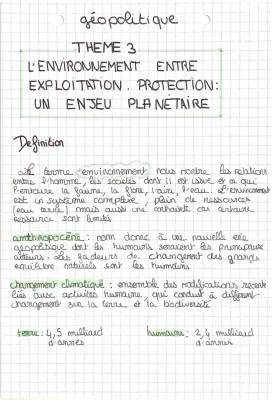 géopolitique
THEME 3
L'ENVIRONNEMENT ENTRE
EXPLOITATION. PROTECTION:
UN ENJEU PLANÉTAIRE
Définition
Le terme environnement nous montre les relations
entre l'homme, les sociétés dont il est issue et ce qui
l'entoure la faune, la flore, l'air, l'eau. L'environnement
est un système complexe, plein de ressources
mais aussi une contrainte car certaine
ressource sont limités
anthropocène : nom donné à une nouvelle ère
géopolitique dont les humains seraient les principaux
acteurs. Les facteurs de changement des grands
équilibre naturels sont les humains
changement climatique : ensemble des modifications récent
liés avec activités humaine, qui conduit à différent
changement sur la terre et la biodiversité
terre : 4,5 milliard
d'années
humains : 2,4 milliard
d'années